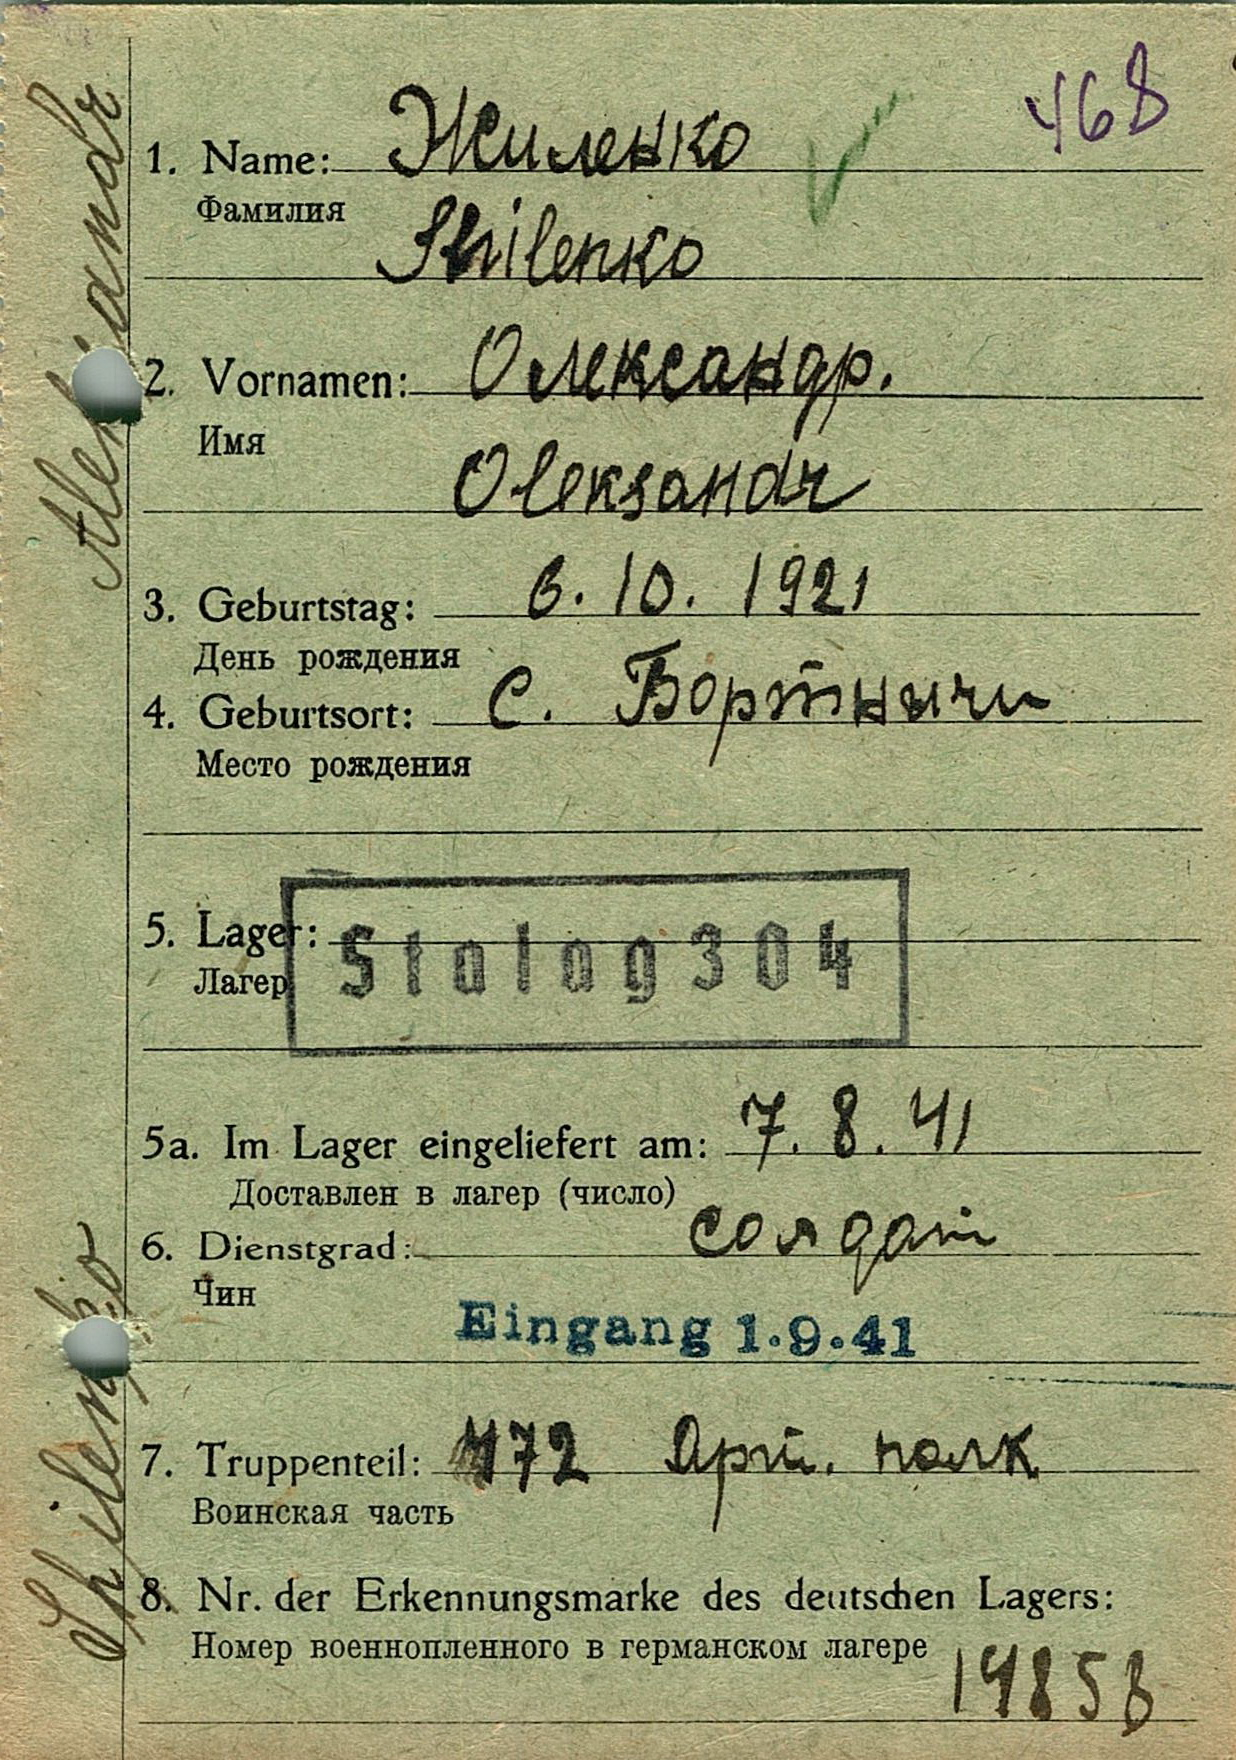 468
1. Name: Жиленко
Фамилия
Shilenko
2. Vornamen: Олександр.
Имя
Oleksandr
3. Geburtstag: 6. 10. 1921
День рождения
4. Geburtsort: с. Бортничи
Место рождения
5. Lager: Stalag 304
Лагер
5a. Im Lager eingeliefert am: 7. 8. 41
Доставлен в лагер (число)
6. Dienstgrad: солдат
Чин
Eingang 1.9.41
7. Truppenteil: 472 Арт. полк
Воинская часть
8. Nr. der Erkennungsmarke des deutschen Lagers:
Номер военнопленного в германском лагере
14858
Shilenko Aleksandr